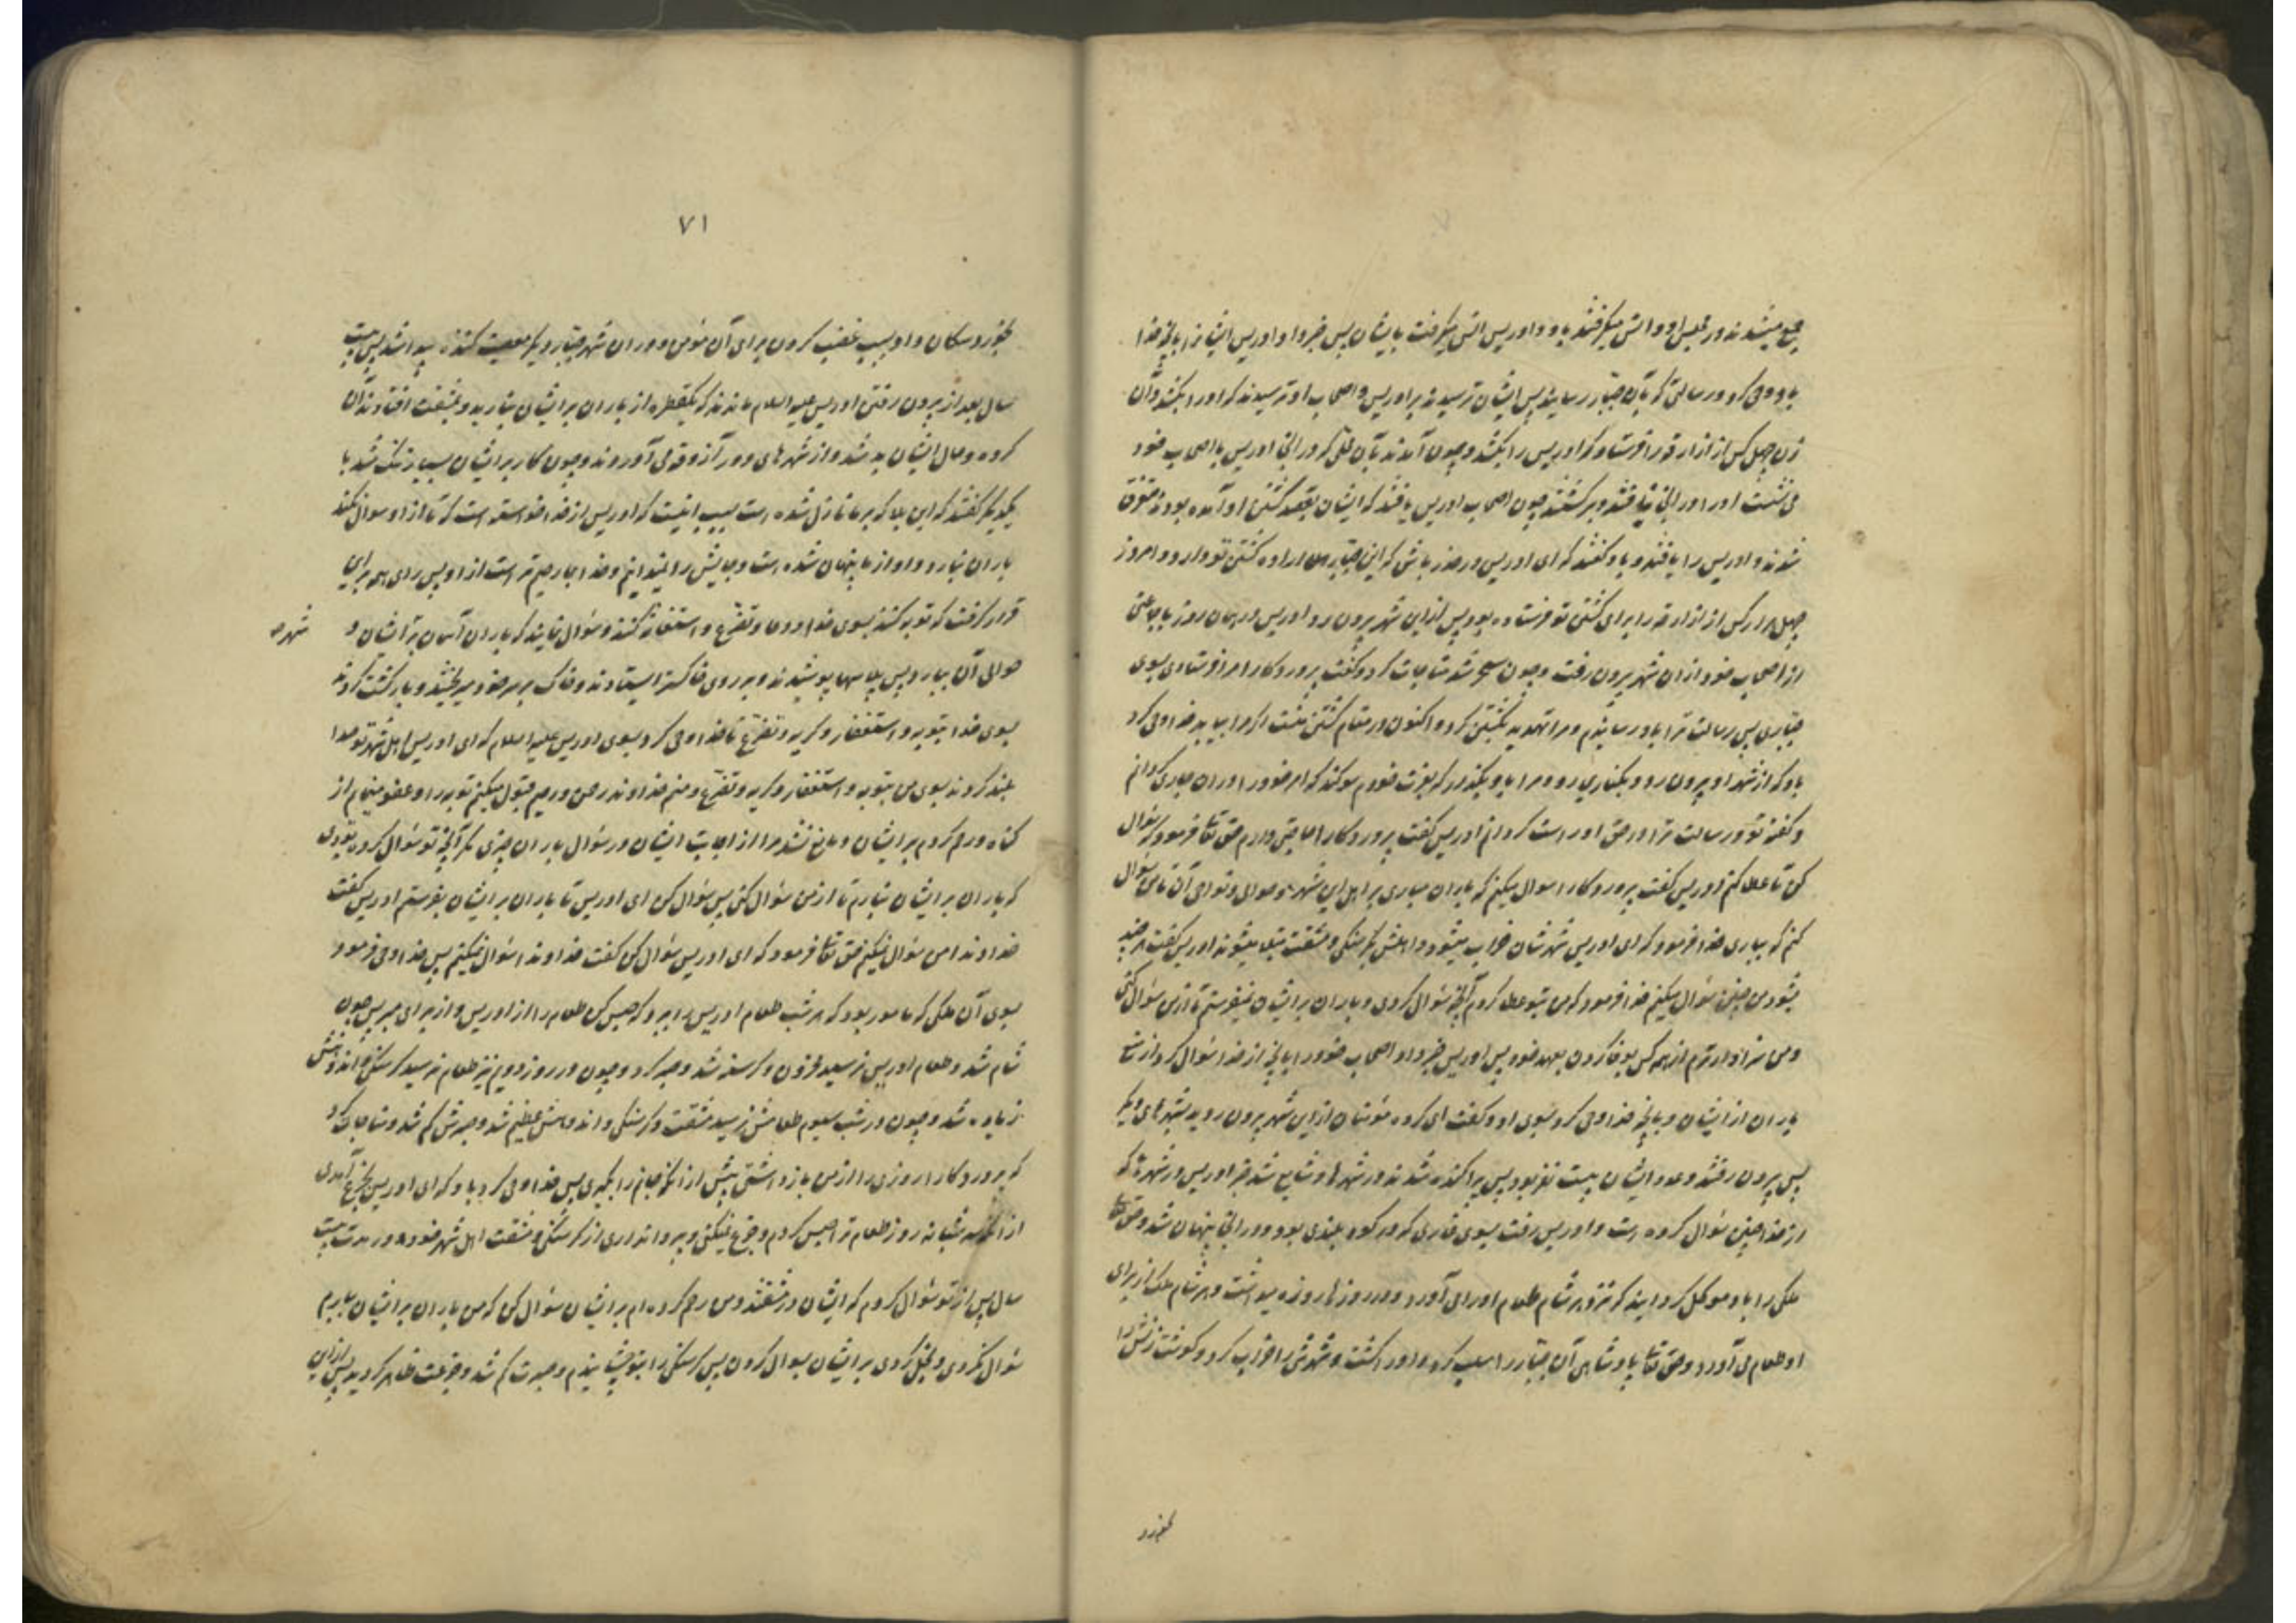 جمع میشدند در مجلس او و انس میگرفتند باو و ادریس انس میگرفت بایشان پس خبر داد ادریس ایشانرا بآنچه خدا
باو وحی کرد و رسالتی که بآن جبار رسانید پس ایشان ترسیدند بر ادریس و اصحاب او ترسیدند که او را بکشند و آن
زن چهل کس از ازارقه را فرستاد که ادریس را بکشند و چون آمدند بآن محلی که در آنجا ادریس با اصحاب خود
می نشست او را در آنجا نیافتند و برگشتند چون اصحاب ادریس یافتند که ایشان بقصد کشتن او آمده بودند متفرق
شدند و ادریس را یافتند و باو گفتند که ای ادریس در حذر باش که این جبار اراده کشتن تو دارد و امروز
چهل کس از ازارقه را برای کشتن تو فرستاده بود پس ازین شهر بیرون رو ادریس در همان روز با جماعتی
از اصحاب خود از ان شهر بیرون رفت و چون سحر شد مناجات کرد و گفت پروردگارا مرا فرستادی بسوی
جباری پس رسالت ترا باو رسانیدم و مرا تهدید بکشتن کرد و اکنون در مقام کشتن منست اگر مرا بیابد خدا وحی کرد
باو که از شهر او بیرون رو و بکناری رو و مرا باو بگذار که بعزت خودم سوگند که امر خود را در ان جاری گردانم
و گفته تو و رسالت ترا در حق او راست گردانم ادریس گفت پروردگارا حاجتی دارم حق تعا فرمود که سؤال
کن تا عطا کنم ادریس گفت پروردگارا سوال میکنم که باران نباری بر اهل این شهر و حوالی و نواحی آن تا من سؤال
کنم که بباری خدا فرمود که ای ادریس شهرشان خراب میشود و اهلش بگرسنگی و مشقت مبتلا میشوند ادریس گفت هر چند
بشود من چنین سؤال میکنم خدا فرمود که من بتو عطا کردم آنچه سؤال کردی و باران بر ایشان نمیفرستم تا از من سؤال کنی
و من سزاوارترم از همه کس بوفا کردن بعهد خود پس ادریس خبر داد اصحاب خود را بآنچه از خدا سؤال کرد از منع
باران از ایشان و بآنچه خدا وحی کرد بسوی او و گفت ای گروه مؤمنان ازین شهر بیرون روید بشهرهای دیگر
پس بیرون رفتند و عدد ایشان بیست نفر بود پس پراکنده شدند در شهرها و شایع شد خبر ادریس در شهرها که
از خدا چنین سؤال کرده است و ادریس رفت بسوی غاری که در کوه بلندی بود و در آنجا پنهان شد و حق تعا
ملکی را باو موکل گردانید که نزد هر شام طعام او را می آورد و در روزها روزه میداشت و هر شام ملک از برای
او طعام می آورد و حق تعا پادشاهی آن جبار را سلب کرد و او را کشت و شهرش را خراب کرد و گوشت زنش را
بخورد
۷۱
بخورد سگان داد بسبب غضب کردن برای آن مؤمن و در ان شهر جبار دیگر معصیت کننده پیدا شد پس بیست
سال بعد از بیرون رفتن ادریس علیه السلام ماندند که یکقطره از باران بر ایشان نبارید و بمشقت افتادند آن
گروه و حال ایشان بد شد و از شهرهای دور آزوقه می آوردند و چون کار بر ایشان بسیار تنگ شد با
یکدیگر گفتند که این بلا که بر ما نازل شده است بسبب اینست که ادریس از خدا خواسته است که تا از او سوال نکند
باران نبارد و او از ما پنهان شده است و جایش را نمیدانیم و خدا بما رحیم تر است از او پس رای همه براین
قرار گرفت که توبه کنند بسوی خدا و دعا و تضرع و استغاثه کنند و سؤال نمایند که باران آسمان بر ایشان و شهر
حوالی آن ببارد پس پلاسها پوشیدند و بر روی خاکستر ایستادند و خاک بر سر خود میریختند و بازگشت کردند
بسوی خدا بتوبه و استغفار و گریه و تضرع تا خدا وحی کرد بسوی ادریس علیه السلام که ای ادریس اهل شهر تو صدا
بلند کردند بسوی من بتوبه و استغفار و گریه و تضرع و منم خداوند رحمن و رحیم قبول میکنم توبه را و عفو مینمایم از
گناه و رحم کردم بر ایشان و مانع نشد مرا از اجابت ایشان در سؤال باران چیزی مگر آنچه تو سؤال کرده بودی
که باران بر ایشان نبارم تا از من سؤال کنی پس سؤال کن ای ادریس تا باران بر ایشان بفرستم ادریس گفت
خداوندا من سؤال نمیکنم حق تعا فرمود که ای ادریس سؤال کن گفت خداوندا سؤال نمیکنم پس خدا وحی فرمود
بسوی آن ملکی که مامور بود که هر شب طعام ادریس را ببرد که حبس کن طعام را از ادریس و از برای او مبر پس چون
شام شد و طعام ادریس نرسید محزون و گرسنه شد و صبر کرد و چون در روز دویم نیز طعام نرسید گرسنگی و اندوهش
زیاده شد و چون در شب سیوم طعامش نرسید مشقت و گرسنگی و اندوهش عظیم شد و صبرش کم شد و مناجات کرد
که پروردگارا روزی را از من باز داشتی پیش از انکه جانم را بگیری پس خدا وحی کرد باو که ای ادریس بجزع آمدی
از انکه سه شبانه روز طعام ترا حبس کردم و جزع نمیکنی و پروا نداری از گرسنگی و مشقت اهل شهر خود در مدت بیست
سال پس از تو سؤال کردم که ایشان در مشقتند و من رحم کرده ام بر ایشان سؤال کن که من باران بر ایشان ببارم
سؤال نکردی و بخل کردی بر ایشان بسوال کردن پس گرسنگی را بتو چشانیدم و صبرت کم شد و جزعت ظاهر گردید پس ازین